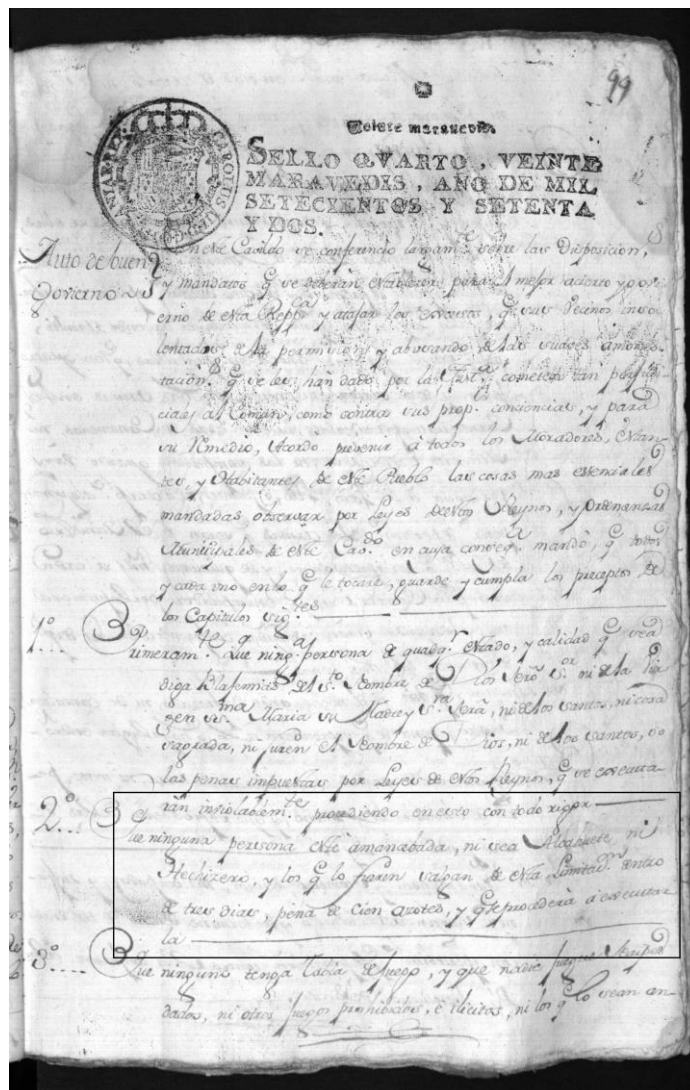 99
Veinte maravedis.
SELLO QVARTO, VEINTE
MARAVEDIS, AÑO DE MIL
SETECIENTOS Y SETENTA
Y DOS.
Auto de buen
Govierno
En este Cavildo se conferencio largam.te sobre las Disposicion,
y mandatos q se deberan establecer para el mejor acierto y govi-
erno de esta Repp.ca y atajar los excesos, q sus Vecinos inso-
lentados de la permission y abusando de las suaves amones-
tacion.s q se les han dado por las Just.as cometen tan perjudi-
ciales al Comun, como contra sus prop.s conciencias, y para
su Remedio, Acordo prevenir à todos los Moradores, estan-
tes, y Havitantes de este Pueblo las cosas mas essenciales
mandadas observar por Leyes de estos Reynos, y Ordenanzas
Municipales de este Cav.do en cuya conseq.a mandò, q todos
y cada uno en lo q le tocare, guarde y cumpla los preceptos de
los Capitulos sig.tes
1º... Primeram.te Que ning.a persona de qualq.r estado, y calidad q sea
diga blasfemias del S.to Nombre de Dios Nro S.or ni de la Vir
gen SS.ma Maria su Madre y S.ra Nrã, ni de los santos, ni cosa
sagrada, ni juren el Nombre de Dios, ni de los santos, so
las penas impuestas por Leyes de estos Reynos, q se executa-
ràn inviolablem.te procediendo en esto con todo rigor
2º... Que ninguna persona esté amancebada, ni sea Alcahuete, ni
Hechizero, y los q lo fueren salgan de esta entro
de tres dias, pena de cien azotes, y q se procederà à executar
la
3º... Que ninguno tenga Tabla de juego, y que nadie juegue Naipes
dados, ni otros juegos prohibidos, è ilicitos, ni los q lo sean an-